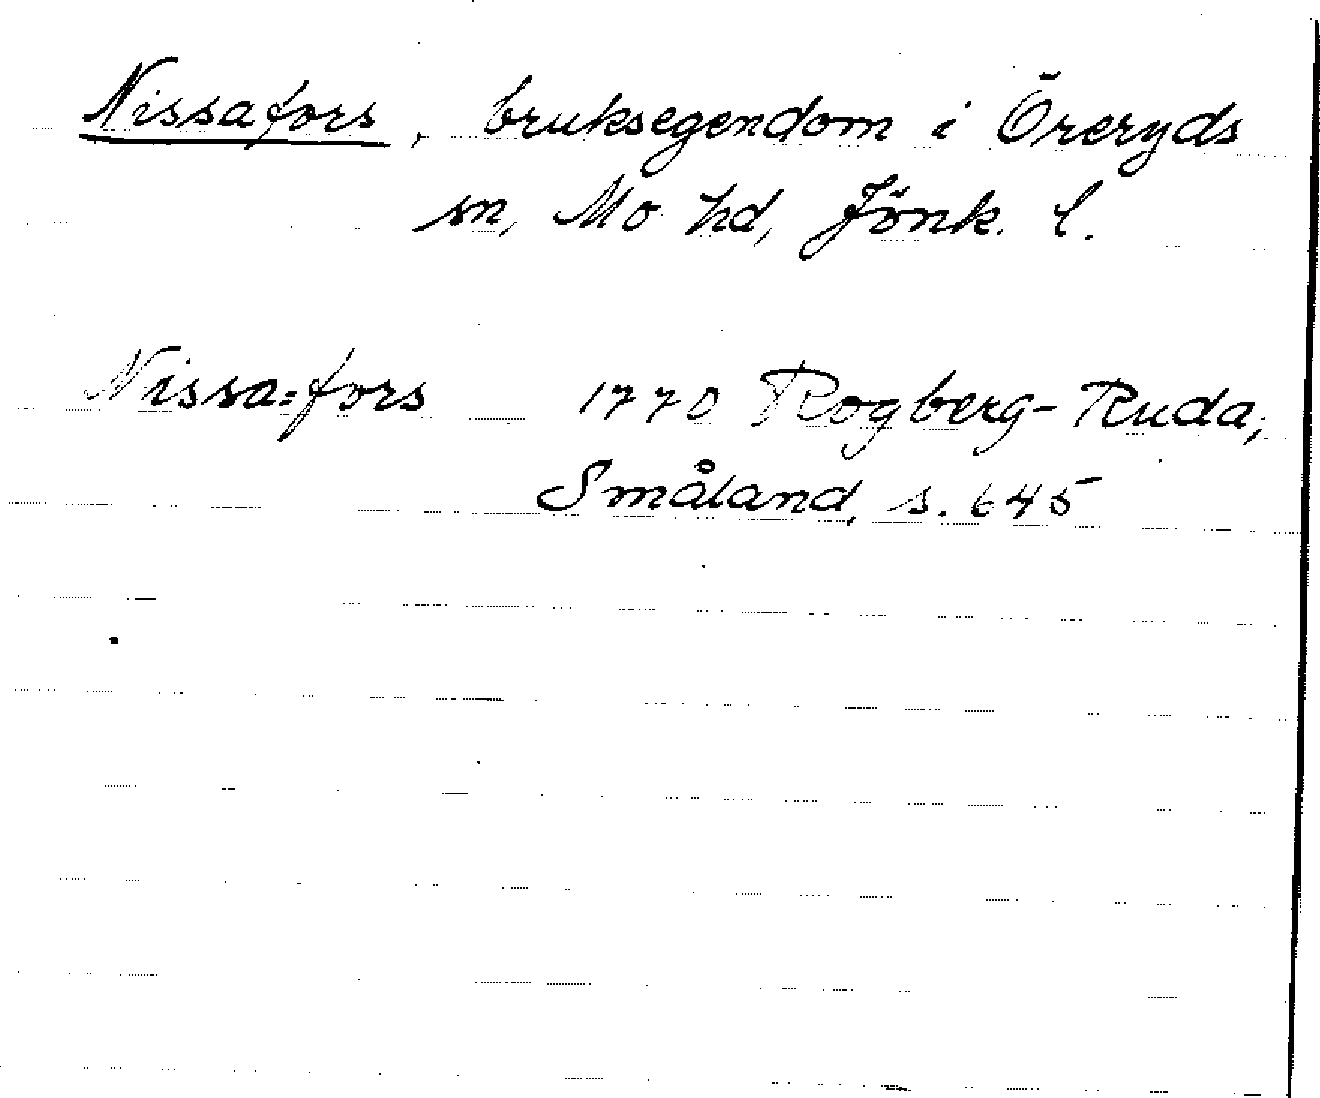 Nissafors, bruksegendom i Öreryds
sn, Mo hd, Jönk. l.
Nissa=fors 1770 Rogberg-Ruda,
Småland, s. 645